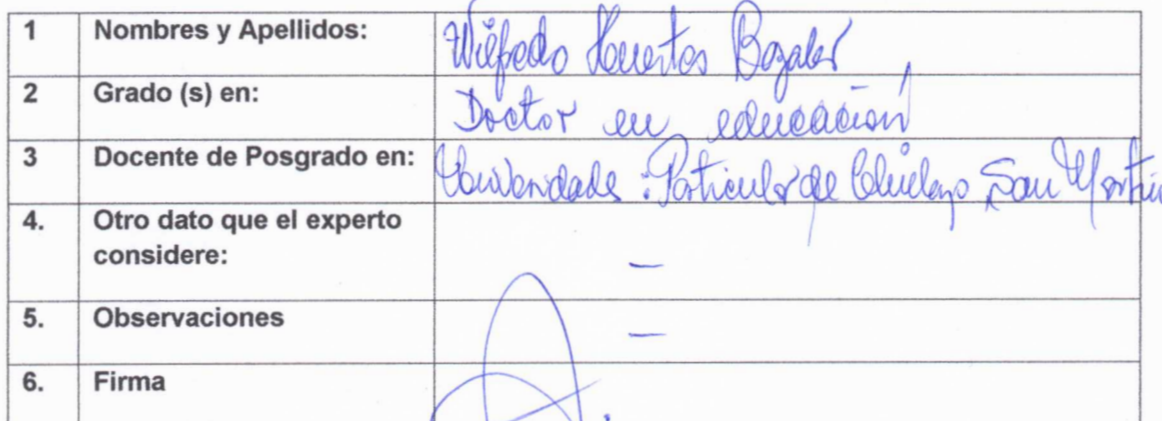 1 Nombres y Apellidos: Wilfredo Huertas
2 Grado (s) en: Doctor en educación
3 Docente de Posgrado en: Particular de Chiclayo, San Martín
4. Otro dato que el experto
considere: —
5. Observaciones —
6. Firma